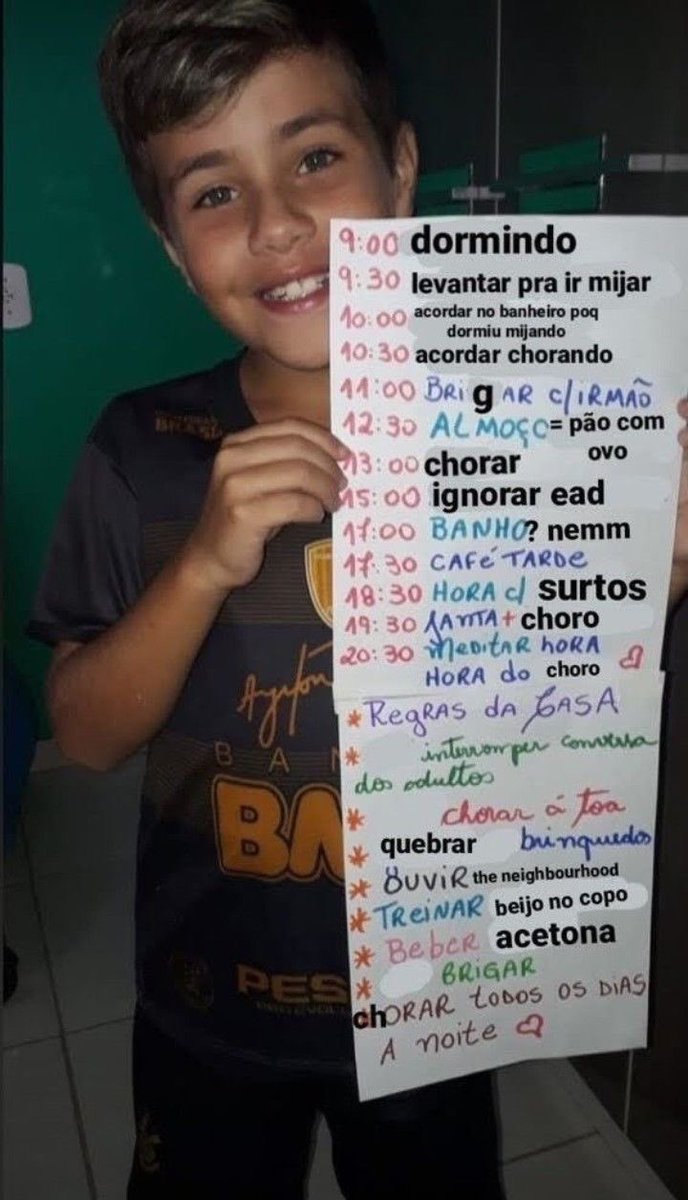 9:00 dormindo
9:30 levantar pra ir mijar
10:00 acordar no banheiro poq
dormiu mijando
10:30 acordar chorando
11:00 BRigAR c/IRMÃO
12:30 ALMOÇO= pão com
ovo
13:00 chorar
15:00 ignorar ead
17:00 BANHO? nemm
17:30 CAFÉ TARDE
18:30 HORA c/ surtos
19:30 JANTA + choro
20:30 MEDITAR HORA
HORA do choro
* REGRAS DA CASA
* interromper conversa
dos adultos
* chorar á toa
* quebrar brinquedos
* OUVIR the neighbourhood
* TREINAR beijo no copo
* Beber acetona
* BRIGAR
chORAR todos os DIAS
A noite
Ayrton
BAN
BA
PES